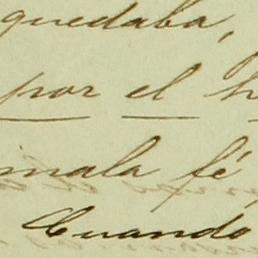 quedaba,
por el h
mala fé,
Cuando